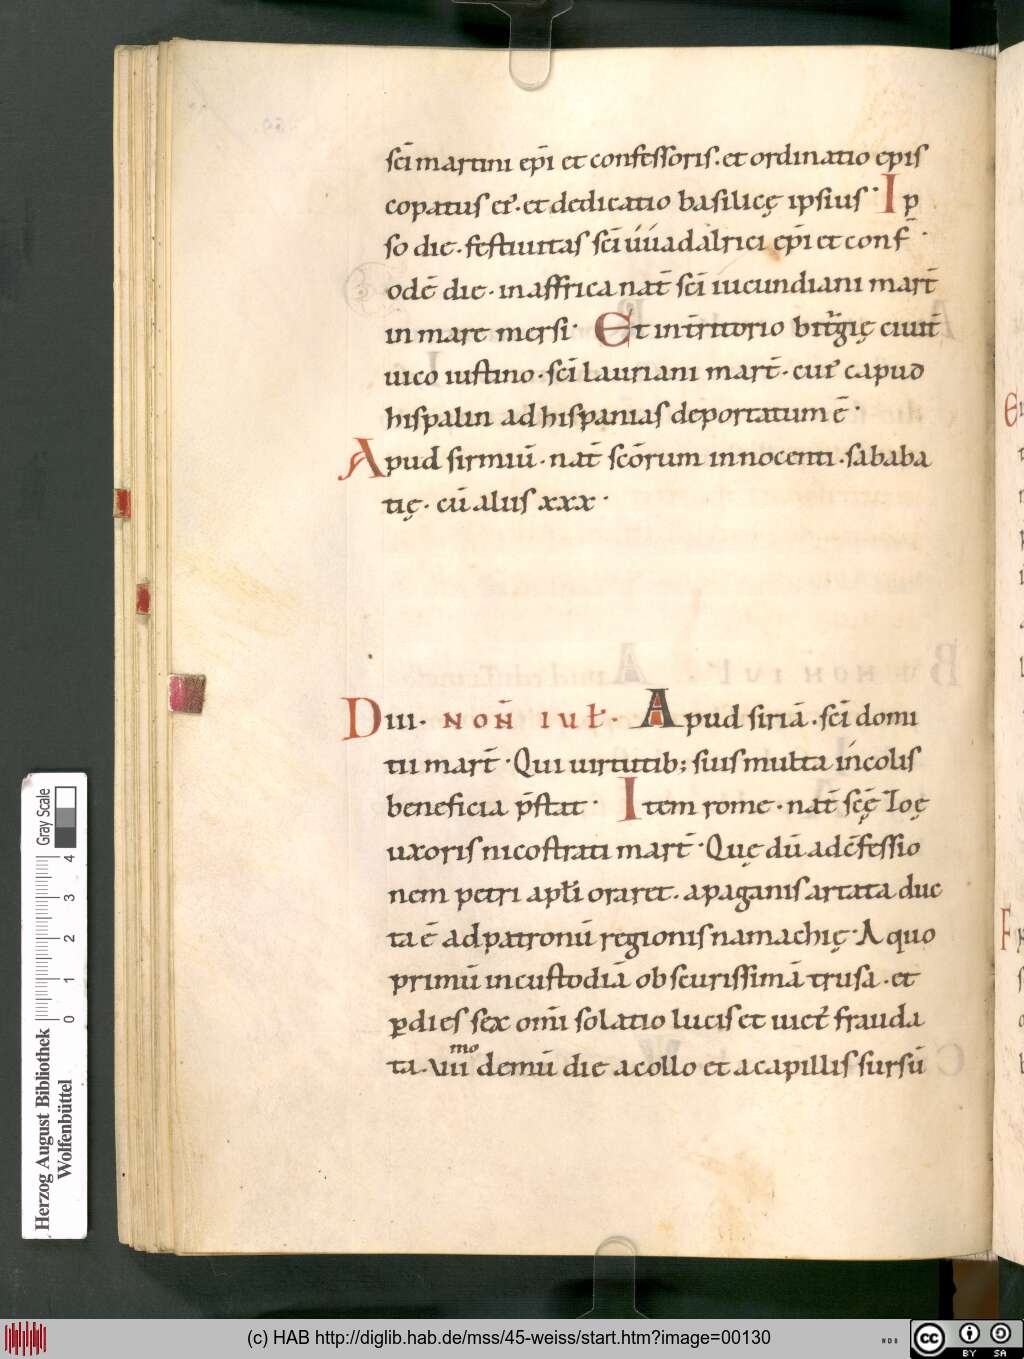 sci martini epi et confessoris. et ordinatio epis
copatus ei'. et dedicatio basilicę ipsius. Ip
so die. festiuitas sci uuadalrici epi et conf.
odē die. in affrica nat̄ sci iucundiani mart̄
in mare mersi. Et in tr̄ritorio bitr̄gię ciuit̄
uico iustino. sci lauriani mart̄. cui' capud
hispalin ad hispanias deportatum ē.
Apud sirmiū. nat̄ scōrum innocenti. sababa
tię. cū aliis xxx.
D iii. NON̄ IUL̄. Apud siriā. sci domi
tii mart̄. Qui uirtutib; suis multa incolis
beneficia p̄stat. Item rome. nat̄ scę̄ Ioę
uxoris nicostrati mart̄. Quę dū ad c̄fessio
nem petri apl̄i oraret. a paganis artata duc
ta ē ad patronū regionis namachię. A quo
primū in custodiā obscurissimā trusa. et
ꝑ dies sex om̄i solatio lucis et uict' frauda
ta. viiiᵐᵒ demū die a collo et a capillis sursū
Gray Scale
0 1 2 3 4
Herzog August Bibliothek
Wolfenbüttel
(c) HAB http://diglib.hab.de/mss/45-weiss/start.htm?image=00130
cc BY SA